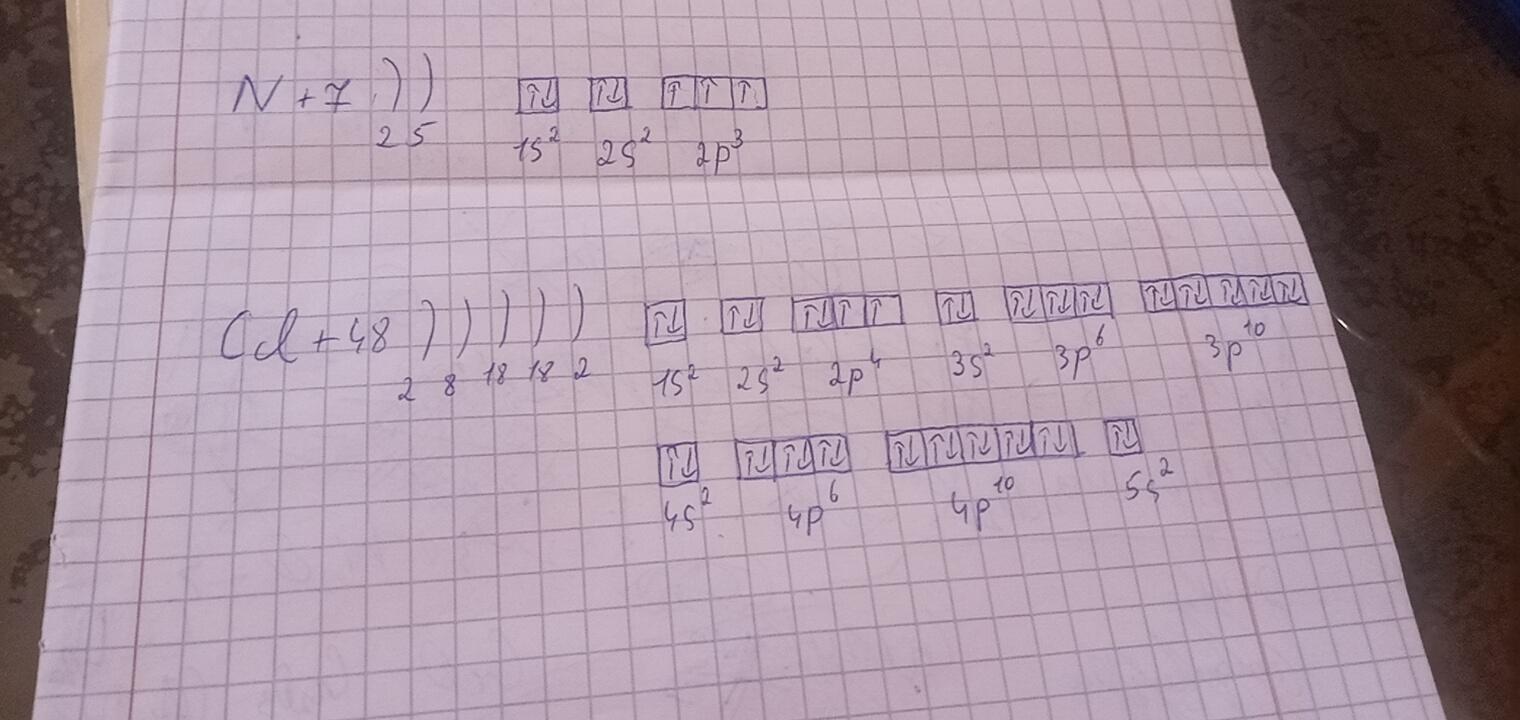 N +7 ) ) ↑↓ ↑↓ ↑ ↑ ↑
2 5 1s² 2s² 2p³
Cd +48 ) ) ) ) ) ↑↓ ↑↓ ↑↓ ↑ ↑ ↑↓ ↑↓ ↑↓ ↑↓ ↑↓ ↑↓ ↑↓ ↑↓ ↑↓
2 8 18 18 2 1s² 2s² 2p⁴ 3s² 3p⁶ 3p¹⁰
↑↓ ↑↓ ↑↓ ↑↓ ↑↓ ↑↓ ↑↓ ↑↓ ↑↓ ↑↓
4s² 4p⁶ 4p¹⁰ 5s²